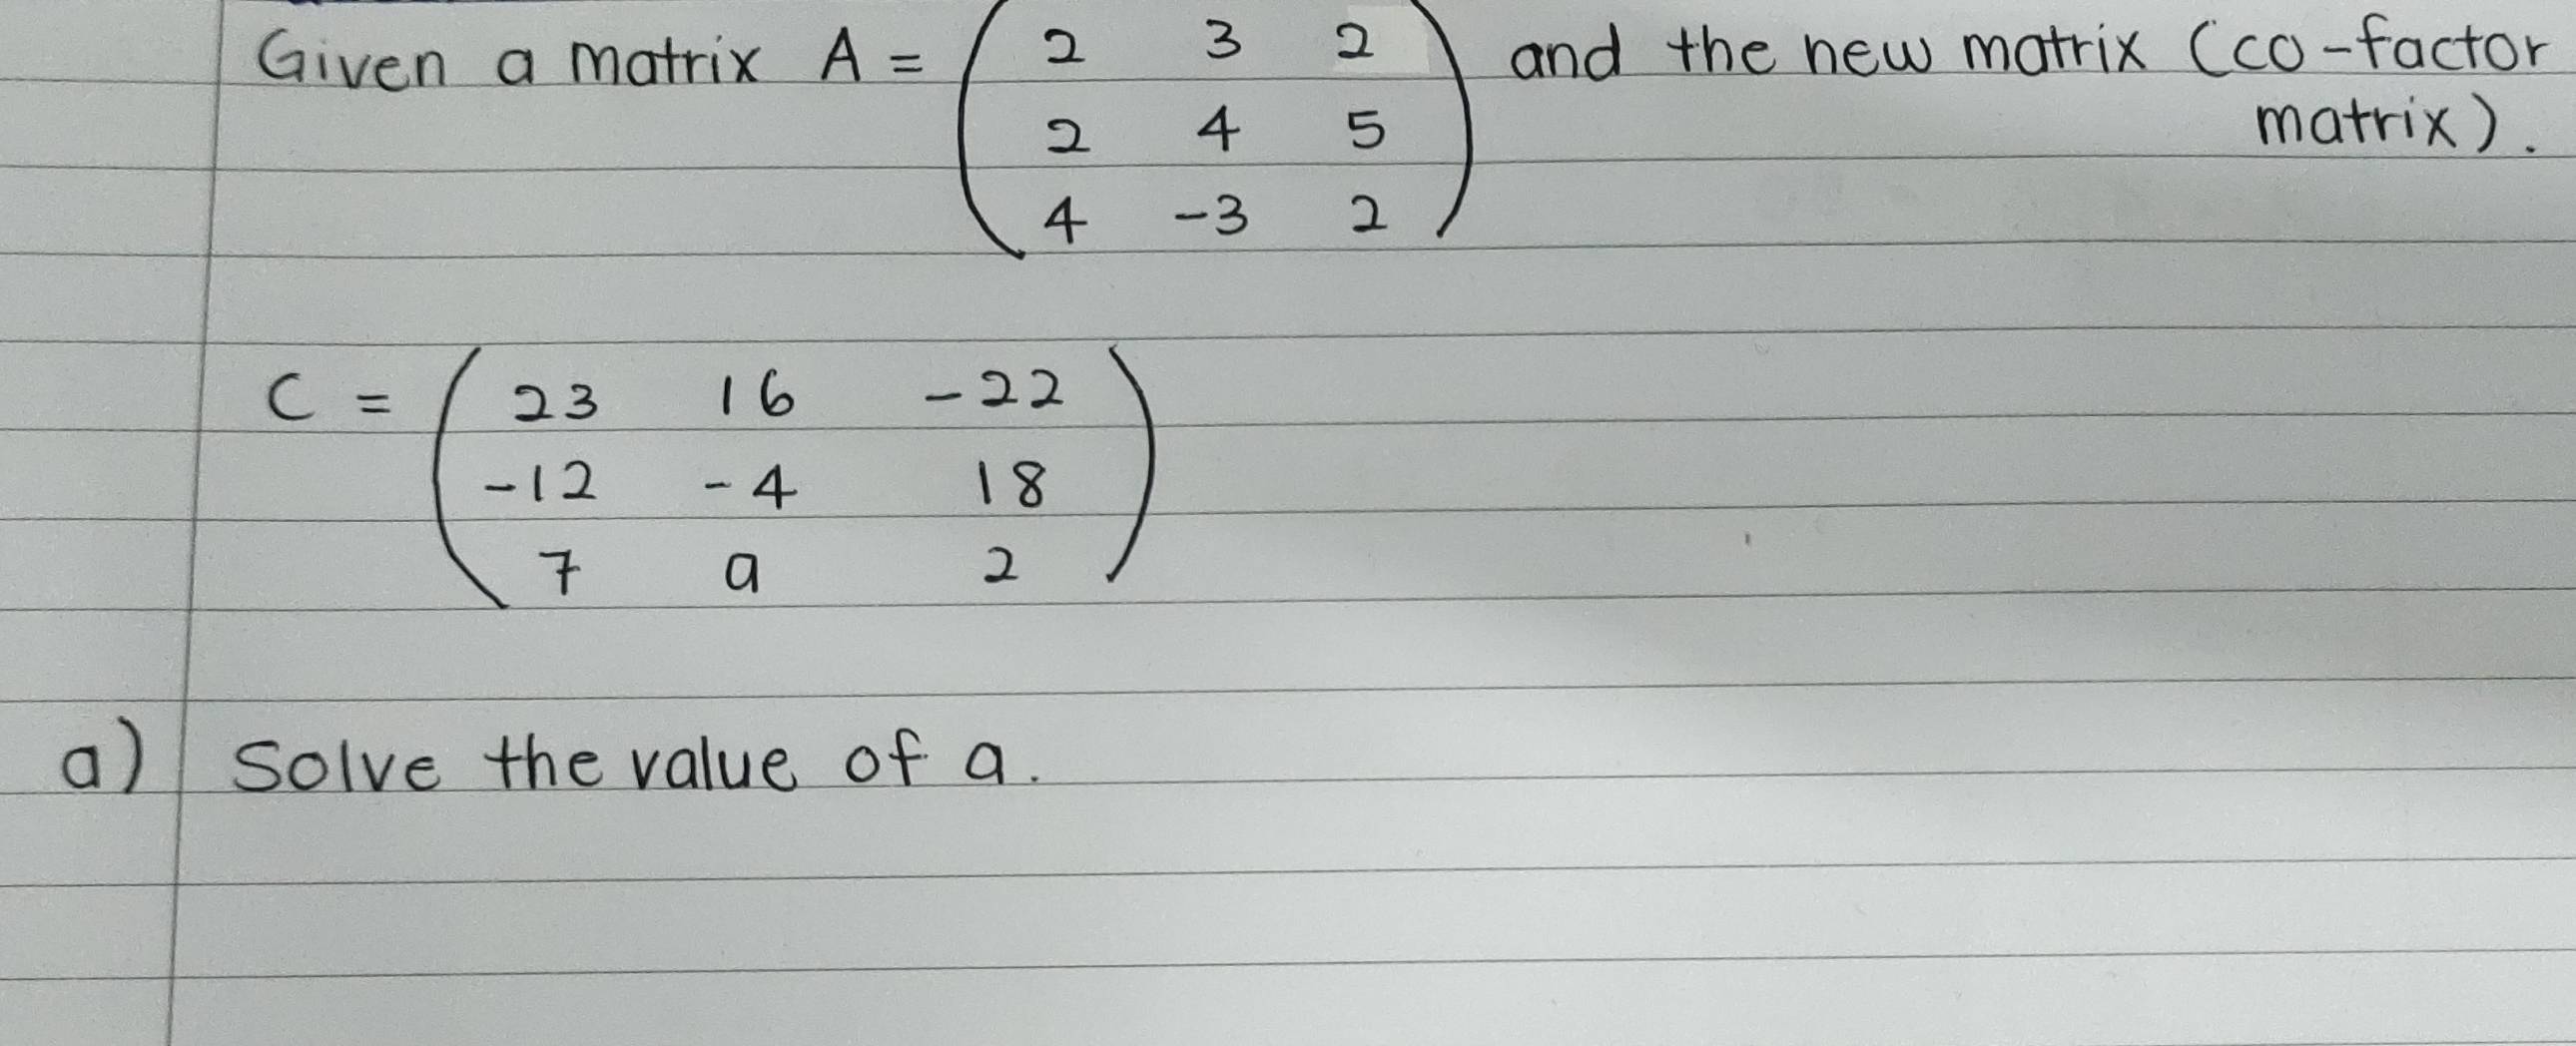 Given a matrix A = ( 2 3 2 ) and the new matrix (co-factor
2 4 5 matrix).
4 -3 2
C = ( 23 16 -22 )
-12 -4 18
7 a 2
a) Solve the value of a.